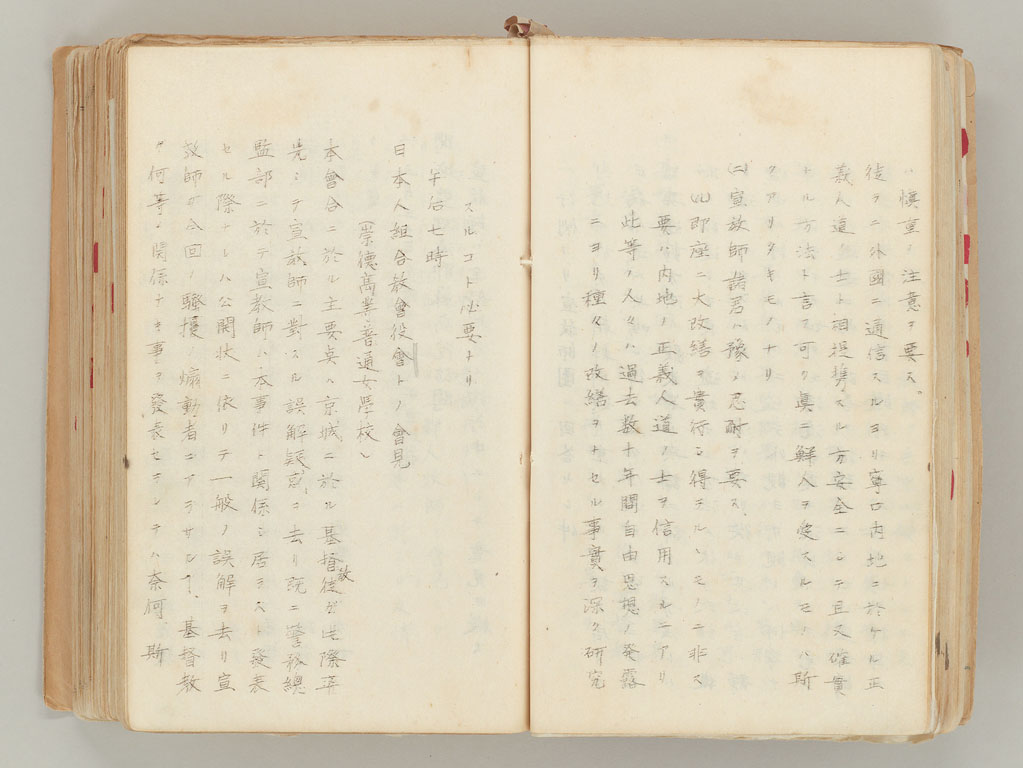 ハ慎重ノ注意ヲ要ス。
徒ラニ外國ニ通信スルヨリ寧ロ内地ニ於ケル正
義人道ノ士ト相提携スル方安全ニシテ且又確實
ナル方法ト言フ可ク真ニ鮮人ヲ愛スルモノハ斯
クアリタキモノナリ
(ニ)宣教師諸君ハ豫メ忍耐ヲ要ス
即座ニ大改繕ヲ實行シ得ラルヽモノニ非ス
要ハ内地ノ正義人道ノ士ヲ信用スルニアリ
此等ノ人々ハ過去数十年間自由思想ノ発露
ニヨリ種々ノ改繕ヲナセル事實ヲ深ク研究
スルコト必要ナリ
午后七時
日本人組合教會役會トノ會見
(崇德高等普通女學校)
本會合ニ於ル主要点ハ京城ニ於ル基督教徒ガ此際率
先シテ宣教師ニ對スル誤解疑惑ヲ去リ既ニ警務總
監部ニ於テ宣教師ハ本事件ト関係シ居ラスト發表
セル際ナレハ公開状ニ依リテ一般ノ誤解ヲ去リ宣
教師ガ今回ノ騒擾ノ煽動者ニアラサルコト、基督教
ガ何等ノ関係ナキ事ヲ發表セラレテハ奈何 斯